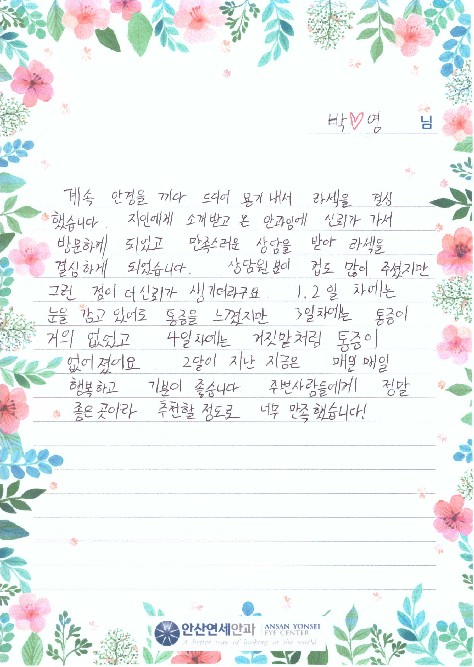 박♡영 님
계속 안경을 끼다 드디어 용기 내서 라섹을 결심
했습니다. 지인에게 소개받고 온 안과임에 신뢰가 가서
방문하게 되었고 만족스러운 상담을 받아 라섹을
결심하게 되었습니다. 상담원 분이 겁도 많이 주셨지만
그런 점이 더 신뢰가 생기더라구요. 1, 2일 차에는
눈을 감고 있어도 통증을 느꼈지만 3일차에는 통증이
거의 없었고 4일차에는 거짓말처럼 통증이
없어졌어요 2달이 지난 지금은 매일 매일
행복하고 기분이 좋습니다 주변사람들에게 정말
좋은 곳이라 추천할 정도로 너무 만족했습니다!
안산연세안과 ANSAN YONSEI
EYE CENTER
A better way of looking at the world